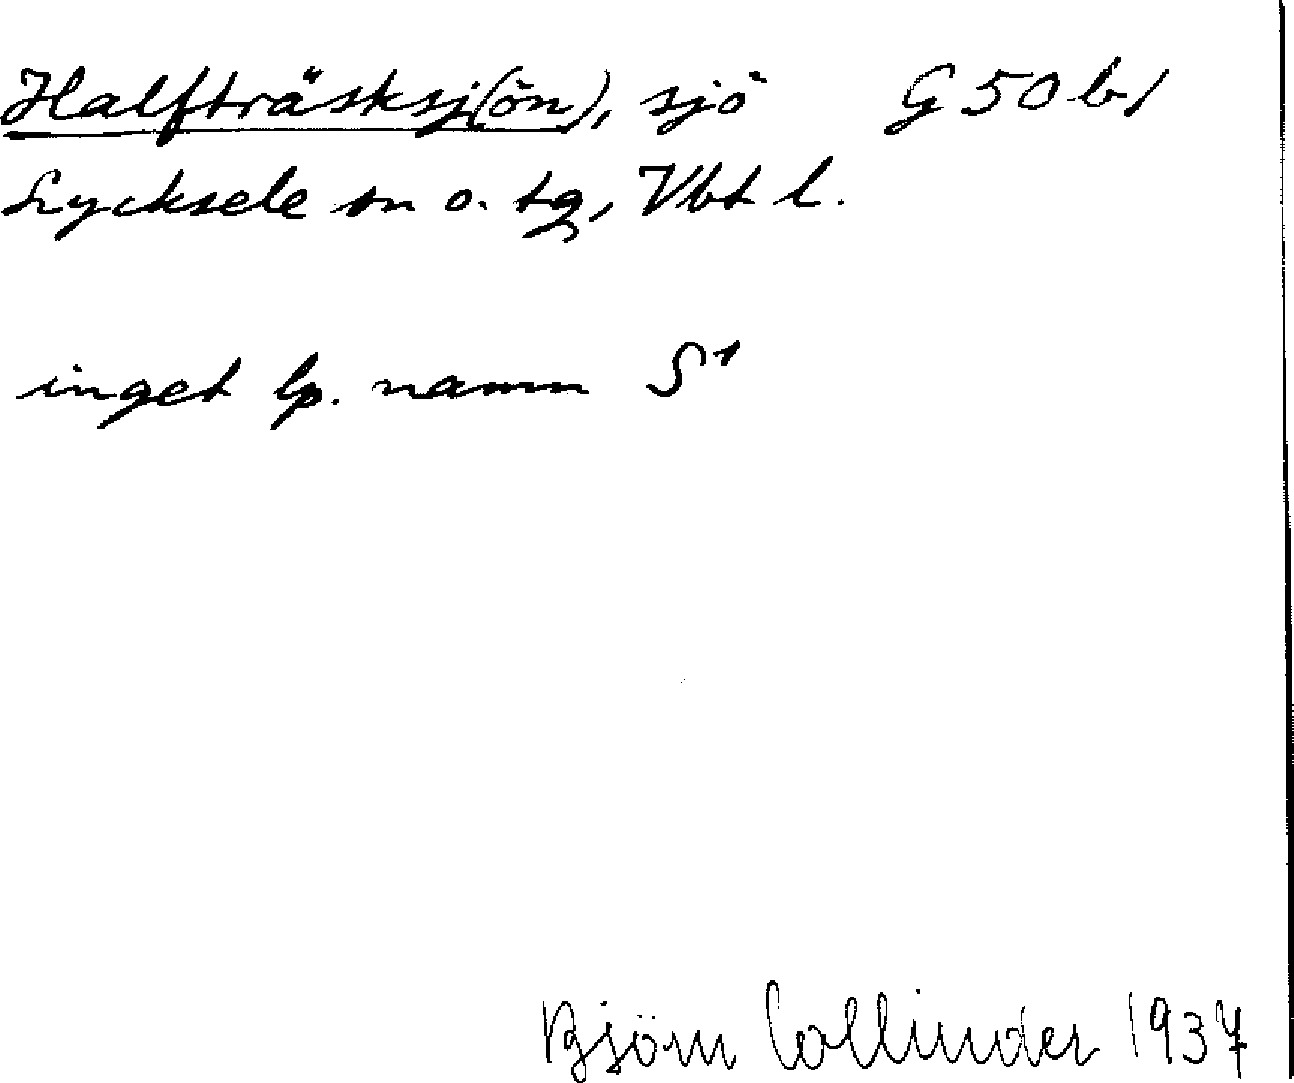 Halfträsksj(ön), sjö G 50 b1
Lycksele sn o. tg, Vbt l.
inget lp. namn S1
Björn Collinder 1937